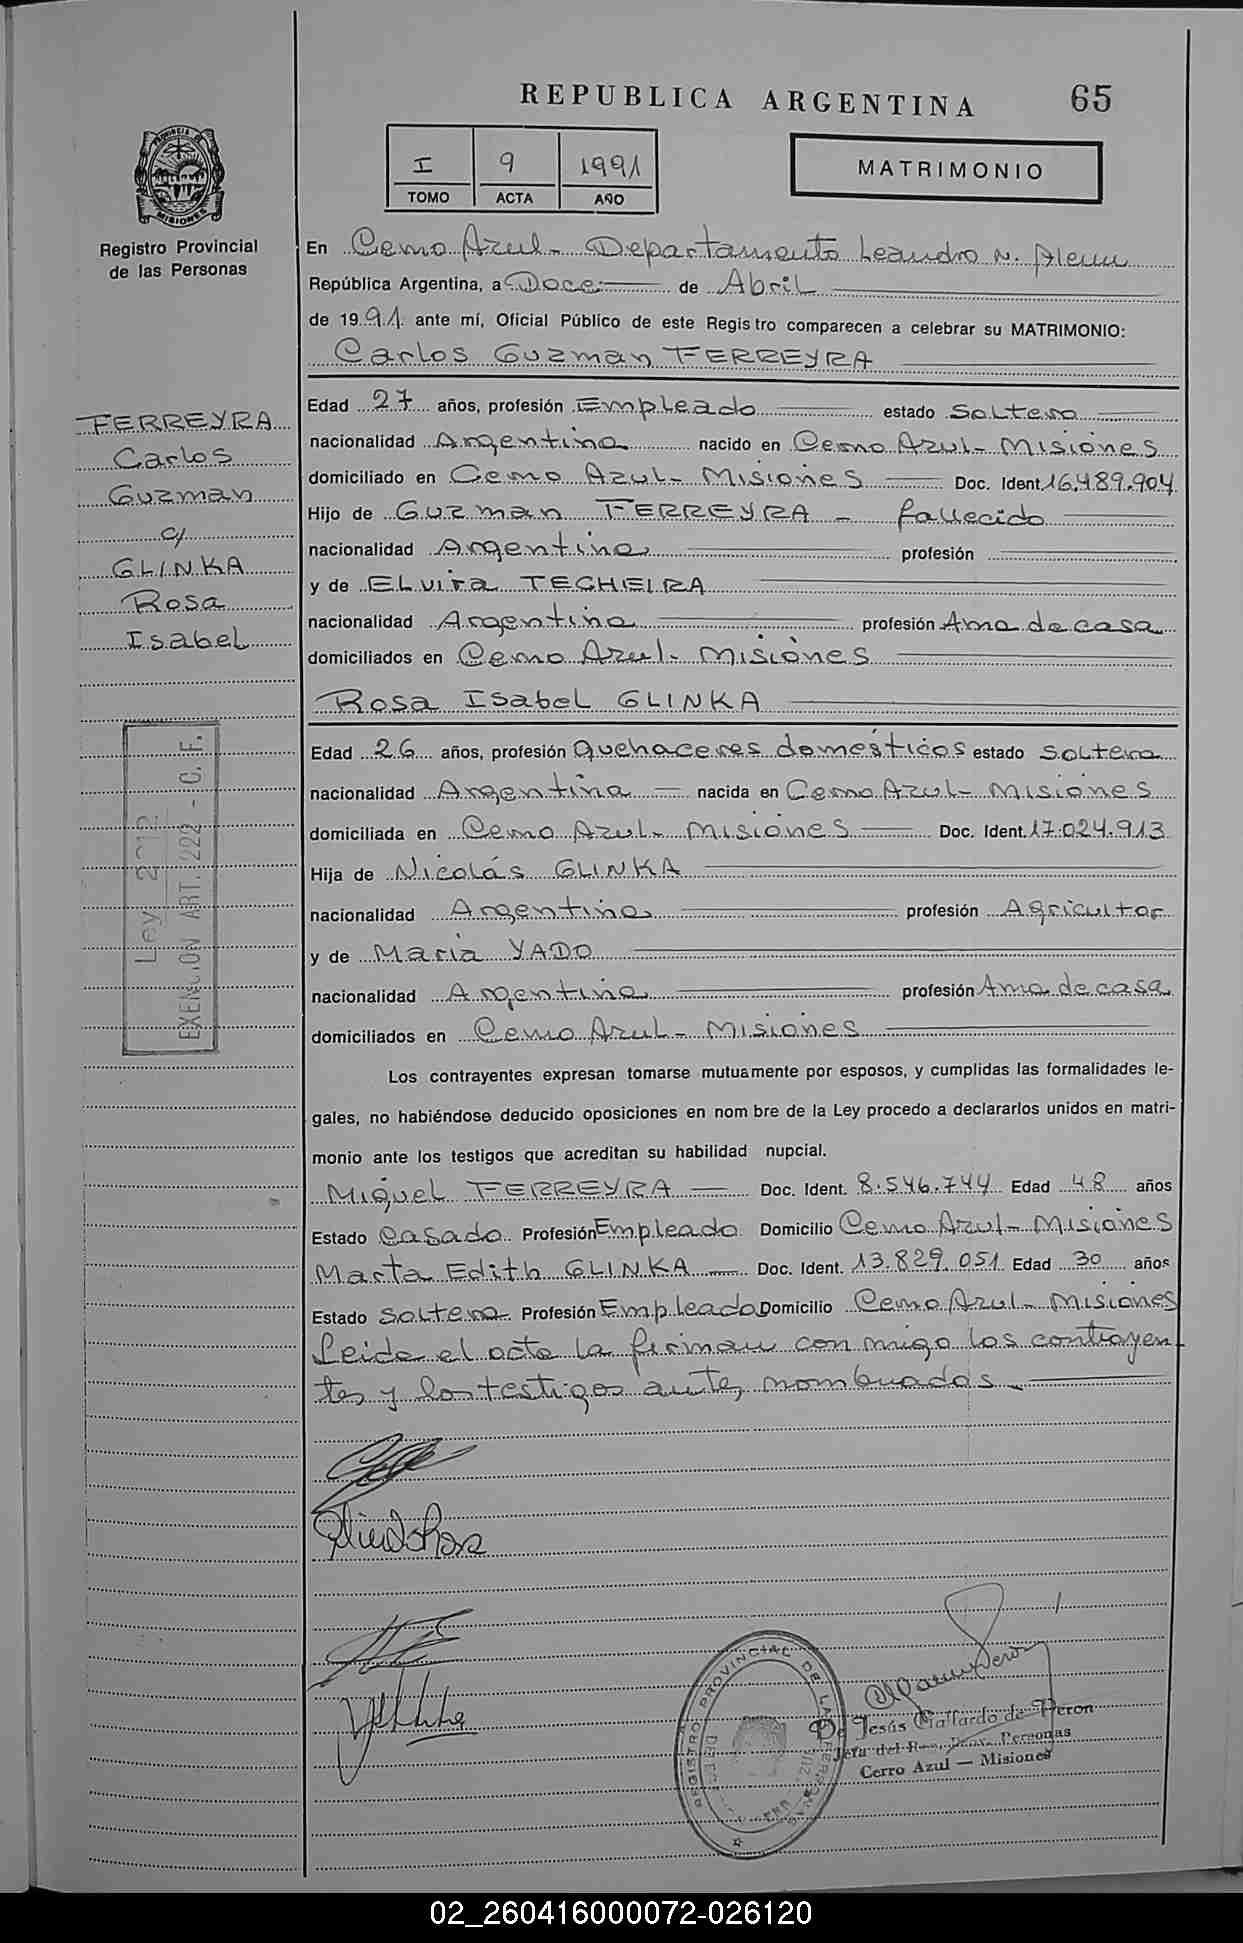 REPUBLICA ARGENTINA 65
I 9 1991
TOMO ACTA AÑO
MATRIMONIO
PROVINCIA DE MISIONES
Registro Provincial
de las Personas
En Cerro Azul - Departamento Leandro N. Alem
República Argentina, a Doce de Abril
de 1991 ante mí, Oficial Público de este Registro comparecen a celebrar su MATRIMONIO:
Carlos Guzman FERREYRA
FERREYRA
Carlos
Guzman
c/
GLINKA
Rosa
Isabel
Edad 27 años, profesión Empleado estado Soltero
nacionalidad Argentina nacido en Cerro Azul - Misiones
domiciliado en Cerro Azul - Misiones Doc. Ident. 16.489.904
Hijo de Guzman FERREYRA - fallecido
nacionalidad Argentina profesión
y de Elvira TECHEIRA
nacionalidad Argentina profesión Ama de casa
domiciliados en Cerro Azul - Misiones
Rosa Isabel GLINKA
Ley 2312
EXENCION ART. 222 - C. F.
Edad 26 años, profesión quehaceres domésticos estado soltera
nacionalidad Argentina nacida en Cerro Azul - Misiones
domiciliada en Cerro Azul - Misiones Doc. Ident. 17.024.913
Hija de Nicolás GLINKA
nacionalidad Argentina profesión Agricultor
y de Maria YADO
nacionalidad Argentina profesión Ama de casa
domiciliados en Cerro Azul - Misiones
Los contrayentes expresan tomarse mutuamente por esposos, y cumplidas las formalidades le-
gales, no habiéndose deducido oposiciones en nombre de la Ley procedo a declararlos unidos en matri-
monio ante los testigos que acreditan su habilidad nupcial.
Miguel FERREYRA Doc. Ident. 8.546.744 Edad 48 años
Estado Casado Profesión Empleado Domicilio Cerro Azul - Misiones
Marta Edith GLINKA Doc. Ident. 13.829.051 Edad 30 años
Estado soltera Profesión Empleada Domicilio Cerro Azul - Misiones
Leida el acta la firman con migo los contrayen-
tes y los testigos antes nombrados.
Glinka Rosa
REGISTRO PROVINCIAL DE LAS PERSONAS
De Jesús Gallardo de Peron
Jefa del Reg. Prov. Personas
Cerro Azul — Misiones
02_260416000072-026120